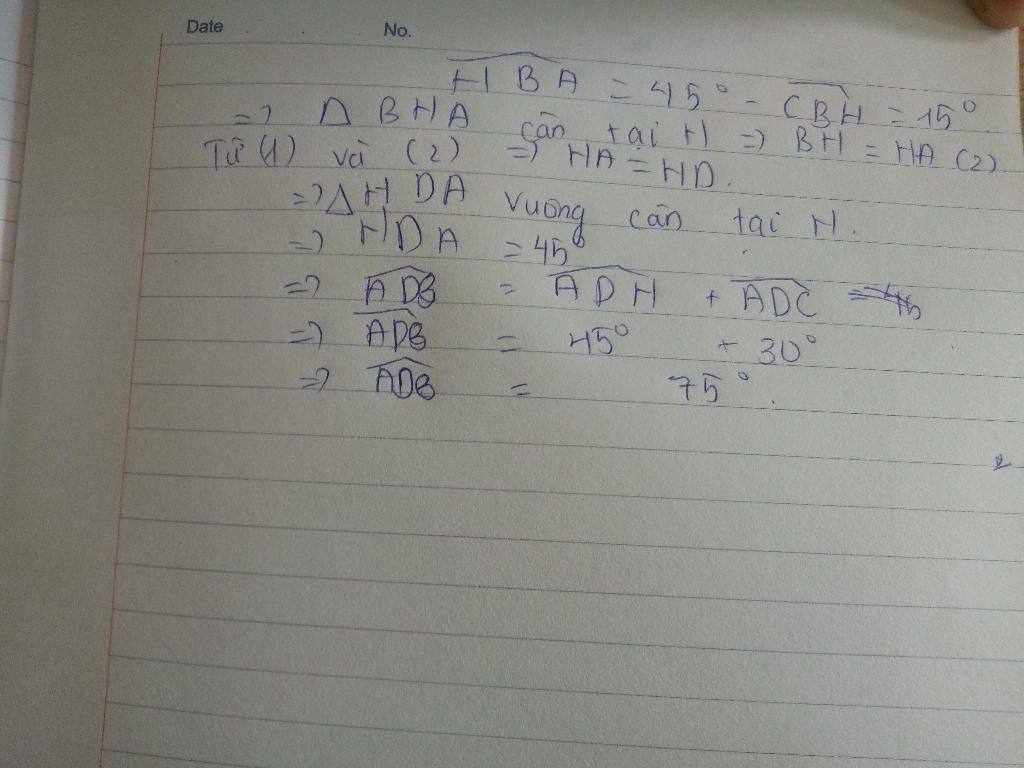 Date No.
HBA = 45° - CBH = 15°
=> Δ BHA cân tại H => BH = HA (2)
Từ (1) và (2) => HA = HD.
=> Δ H DA vuông cân tại H.
=> HDA = 45°
=> ADB = ADH + ADC
=> ADB = 45° + 30°
=> ADB = 75°.